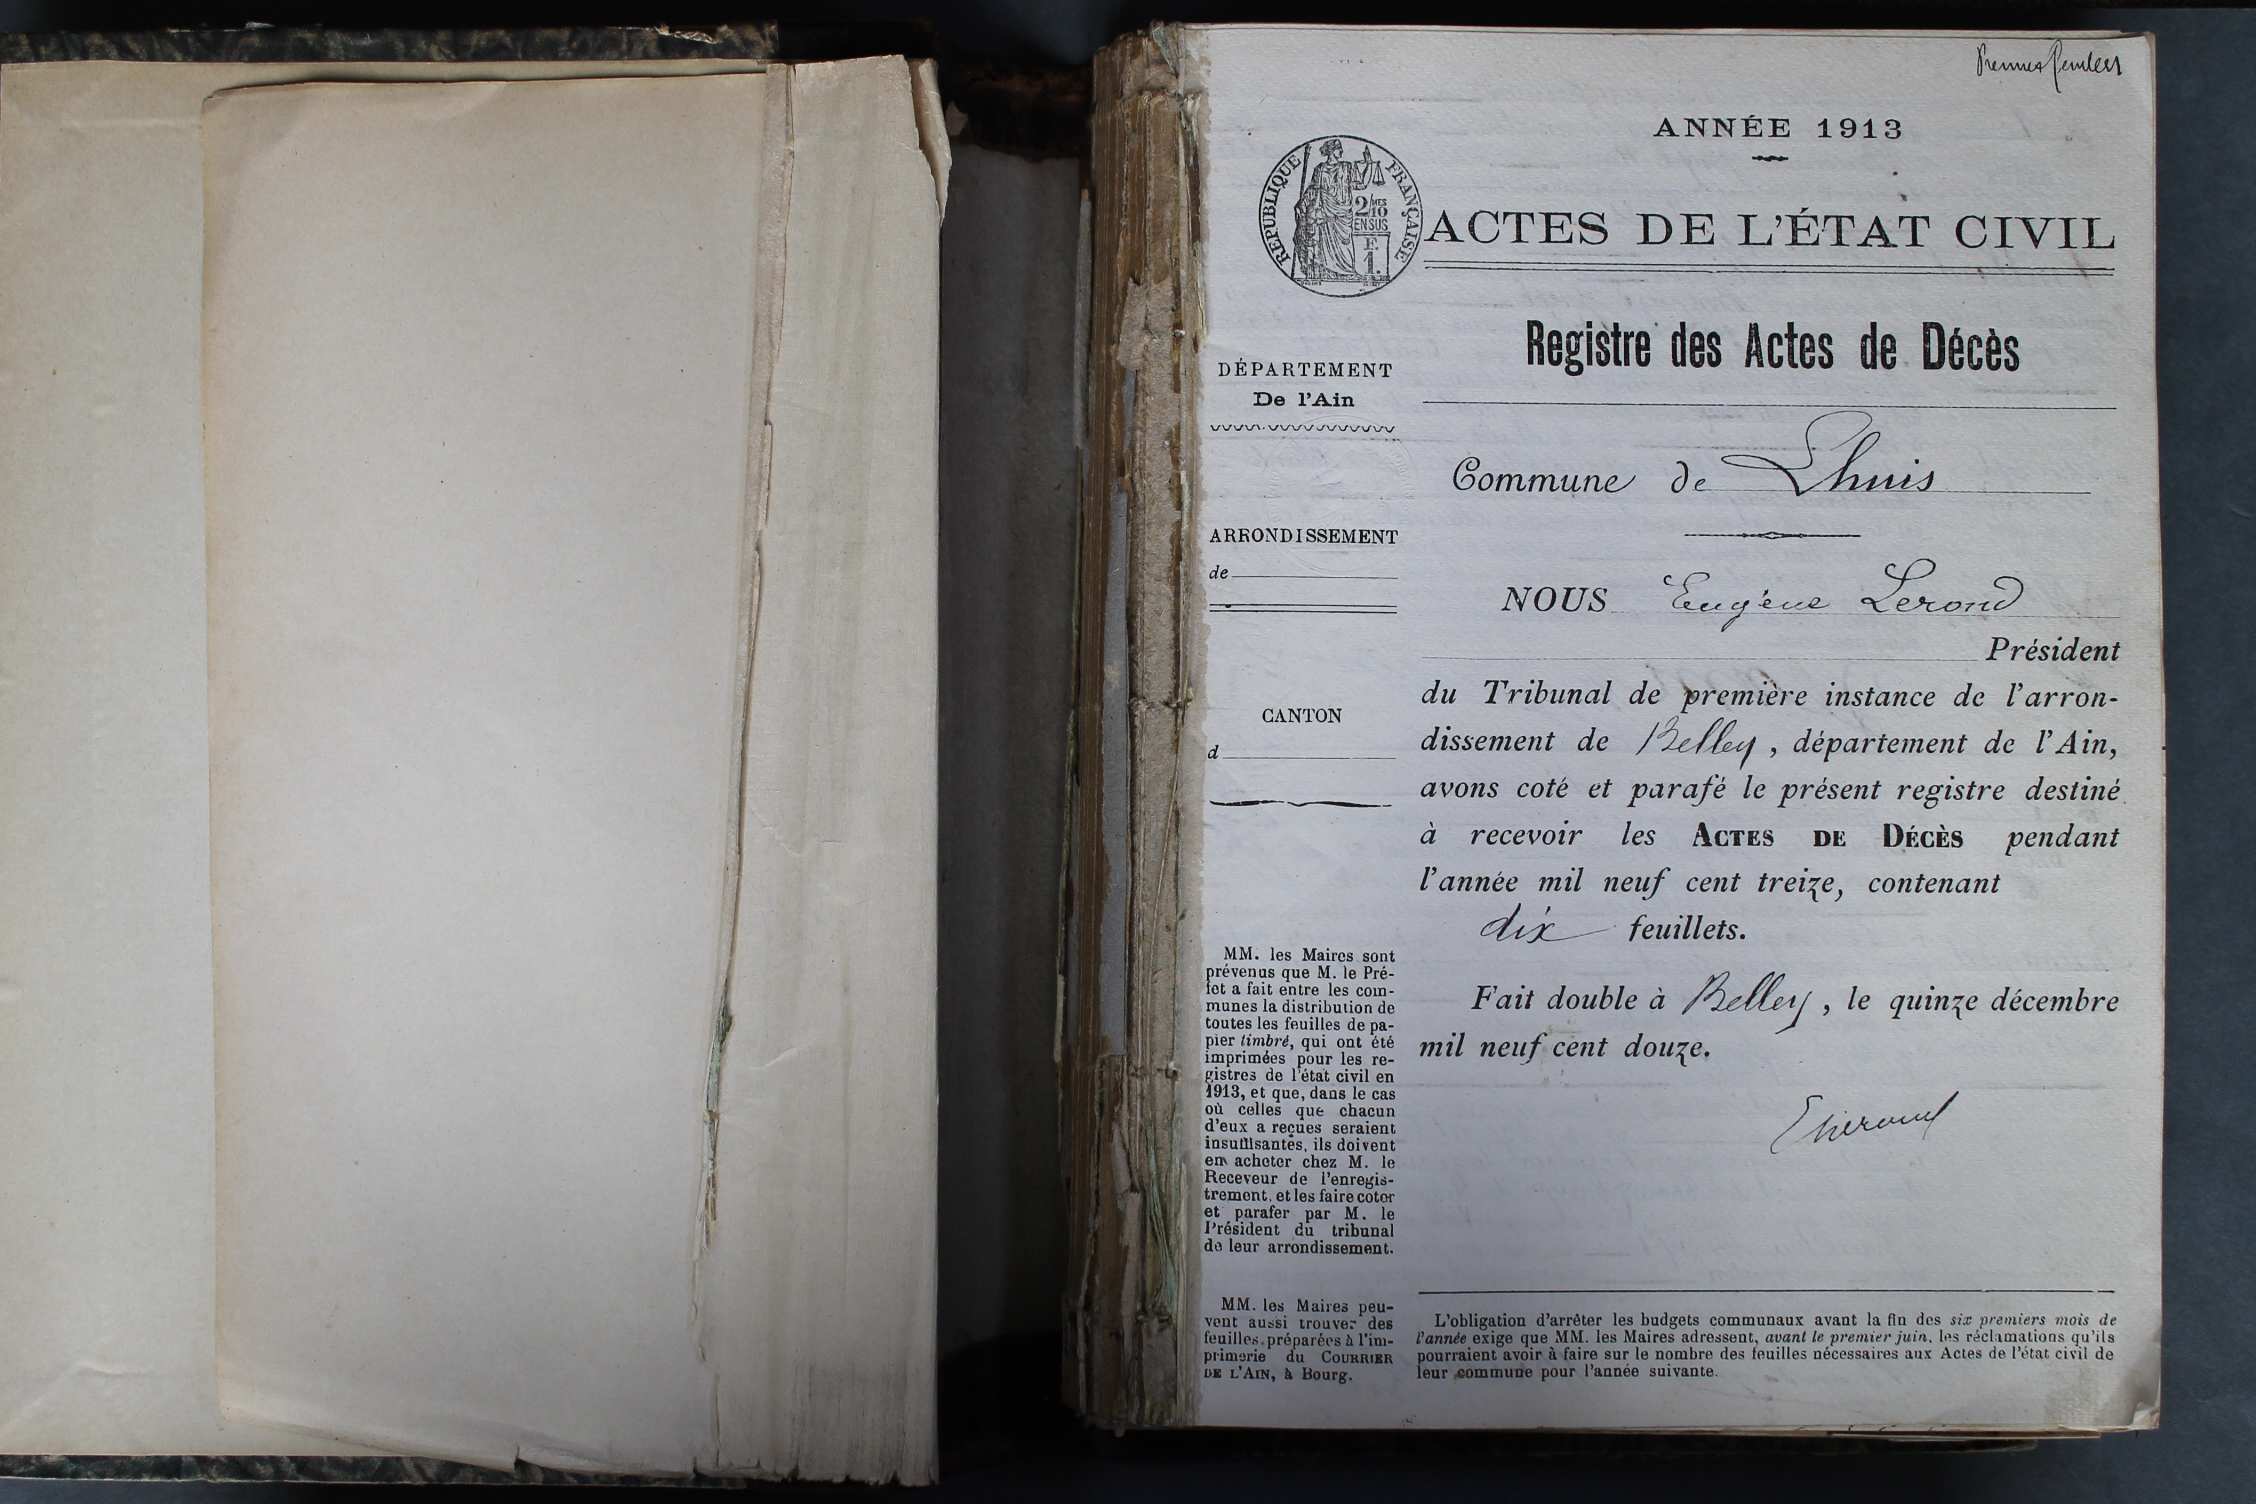 Premier feuillet
ANNÉE 1913
RÉPUBLIQUE FRANÇAISE
2/10 MES
EN SUS
F.
1.
ACTES DE L'ÉTAT CIVIL
Registre des Actes de Décès
DÉPARTEMENT
De l'Ain
Commune de Lhuis
ARRONDISSEMENT
de
NOUS Eugène Lerond
Président
du Tribunal de première instance de l'arron-
dissement de Belley, département de l'Ain,
avons coté et parafé le présent registre destiné
à recevoir les ACTES DE DÉCÈS pendant
l'année mil neuf cent treize, contenant
dix feuillets.
Fait double à Belley, le quinze décembre
mil neuf cent douze.
CANTON
d
MM. les Maires sont
prévenus que M. le Pré-
fet a fait entre les com-
munes la distribution de
toutes les feuilles de pa-
pier timbré, qui ont été
imprimées pour les re-
gistres de l'état civil en
1913, et que, dans le cas
où celles que chacun
d'eux a reçues seraient
insuffisantes, ils doivent
en acheter chez M. le
Receveur de l'enregis-
trement, et les faire coter
et parafer par M. le
Président du tribunal
de leur arrondissement.
MM. les Maires peu-
vent aussi trouver des
feuilles préparées à l'im-
primerie du COURRIER
DE L'AIN, à Bourg.
L'obligation d'arrêter les budgets communaux avant la fin des six premiers mois de
l'année exige que MM. les Maires adressent, avant le premier juin, les réclamations qu'ils
pourraient avoir à faire sur le nombre des feuilles nécessaires aux Actes de l'état civil de
leur commune pour l'année suivante.